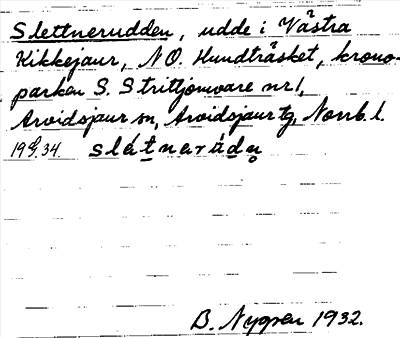 Slettnerudden, udde i Västra
Kikkejaur, NO. Hundträsket, krono-
parken S. Strittjomvare nr 1,
Arvidsjaur sn, Arvidsjaur tg, Norrb. l.
19 34. slétnerádn̥
B. Nygren 1932.